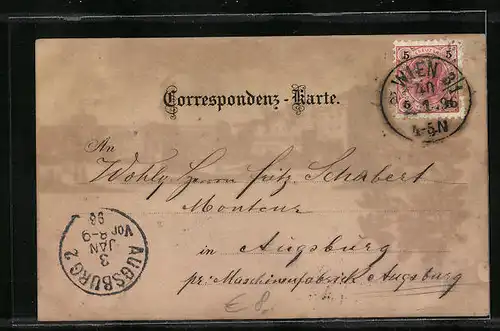 5 5
WIEN 3/1
40
2.1.96
4-5N
Correspondenz-Karte.
An
Wohlg Herrn Fritz Schabert
Monteur
in Augsburg
pr. Maschinenfabrik Augsburg
AUGSBURG 2
3
JAN
Vor 8-9
96
€ 8,